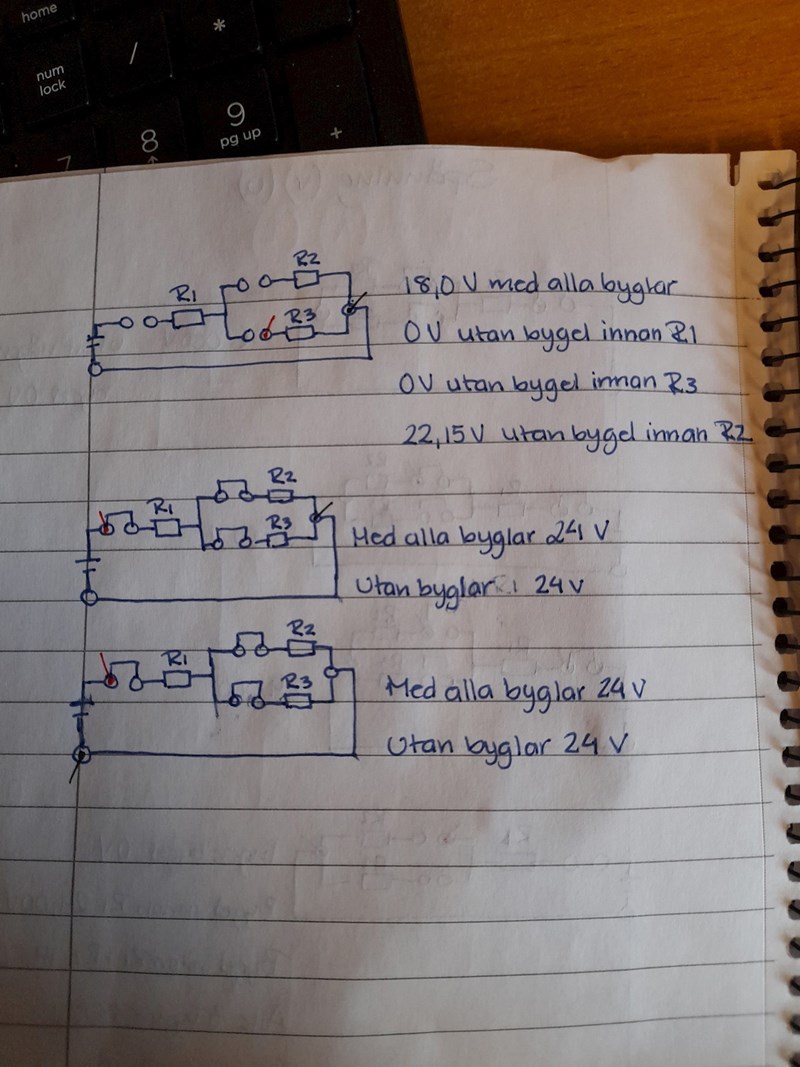 home
num
lock
/
*
7
8
9
pg up
+
R1
R2
R3
18,0 V med alla byglar
0 V utan bygel innan R1
0V utan bygel innan R3
22,15 V utan bygel innan R2
R1
R2
R3
Med alla byglar 24 V
Utan byglar 24 V
R1
R2
R3
Med alla byglar 24 V
Utan byglar 24 V